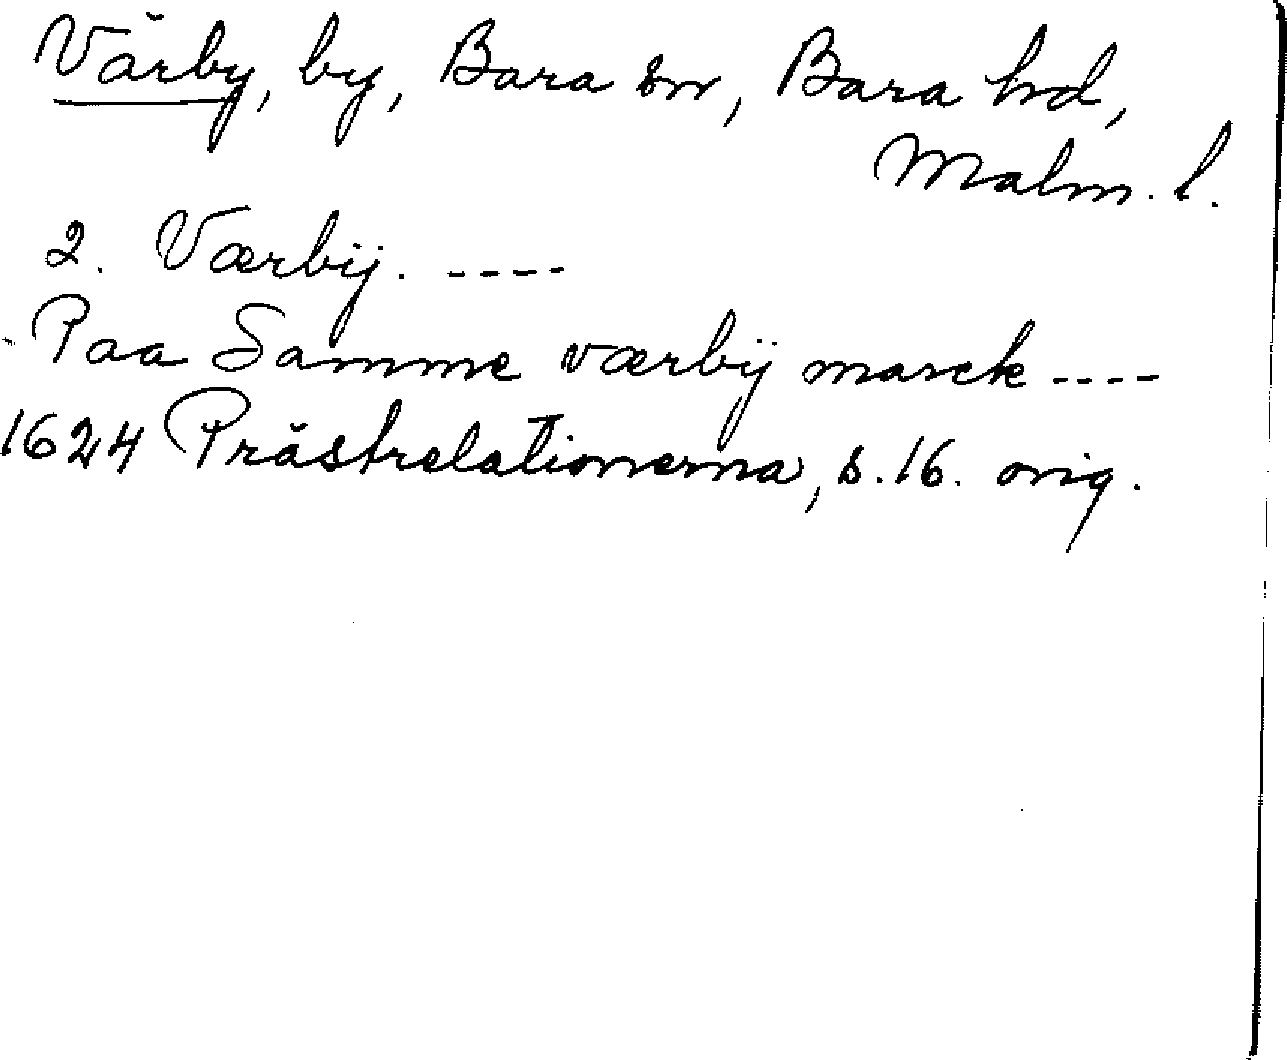 Värby, by, Bara sn, Bara hd,
Malm. l.
2. Værbij. ----
Paa Samme værbij marck ----
1624 Prästrelationerna, s. 16. orig.